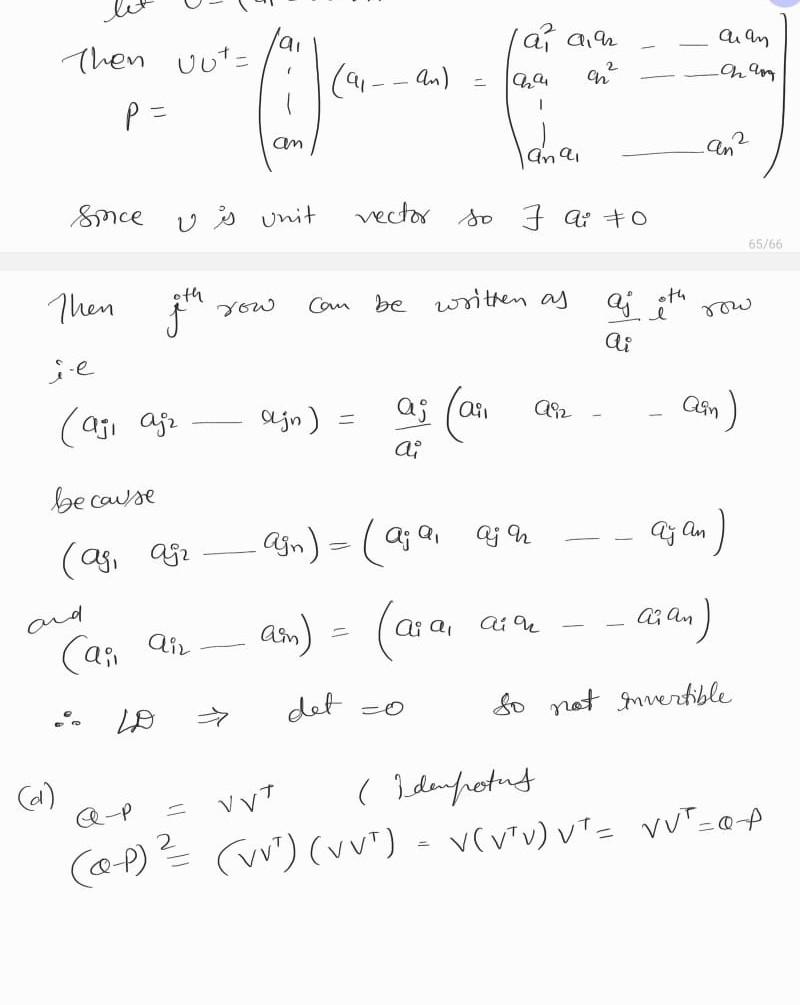 let U = (a₁
Then UUᵗ = (a₁ ... an) (a₁ -- an) = (a₁² a₁a₂ - — a₁an
P = a₂a₁ a₂² — — a₂an
ana₁ — an²)
Since U is unit vector so ∃ ai ≠ 0
65/66
Then jth row can be written as aj/ai ith row
i.e
(aj1 aj2 — ajn) = aj/ai (ai1 ai2 - - ain)
because
(aj1 aj2 — ajn) = (aja₁ aja₂ — - ajan)
and
(ai1 ai2 — ain) = (aia₁ aia₂ - - aian)
∴ LD ⇒ det = 0 so not invertible
(d) Q-P = VVᵀ ( Idempotent
(Q-P)² = (VVᵀ)(VVᵀ) = V(VᵀV)Vᵀ = VVᵀ = Q-P